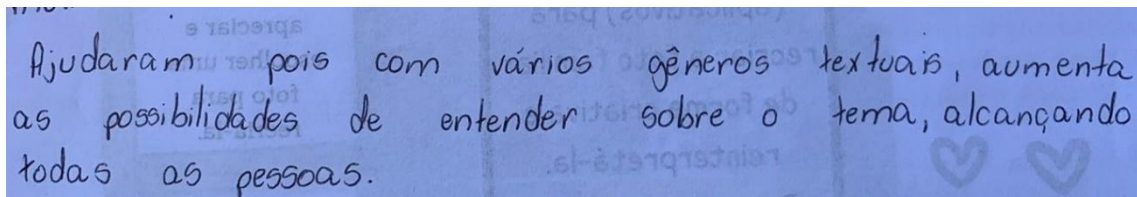 Ajudaram pois com vários gêneros textuais, aumenta
as possibilidades de entender sobre o tema, alcançando
todas as pessoas.